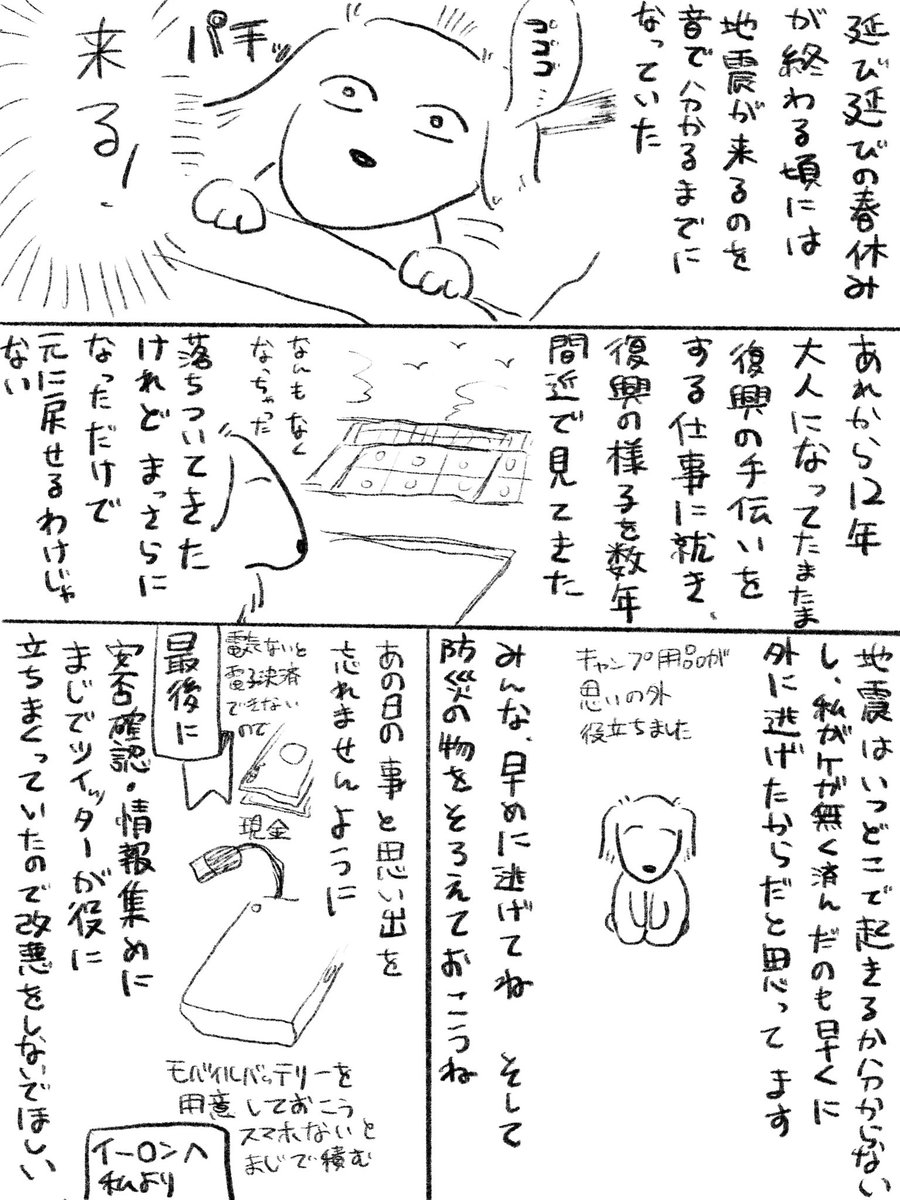 延び延びの春休み
が終わる頃には
地震が来るのを
音で分かるまでに
なっていた
ゴゴゴ…
パチッ
来る!
あれから12年
大人になってたまたま
復興の手伝いを
する仕事に就き、
復興の様子を数年
間近で見てきた
なんもなく
なっちゃった
落ちついてきた
けれど まっさらに
なっただけで
元に戻せるわけじゃ
ない
地震はいつどこで起きるか分からない
し、私がケガ無く済んだのも早くに
外に逃げたからだと思ってます
キャンプ用品が
思いの外
役立ちました
みんな、早めに逃げてね そして
防災の物をそろえておこうね
あの日の事と思い出を
忘れませんように
電気ないと
電子決済
できない
ので
現金
モバイルバッテリーを
用意しておこう
スマホないと
まじで積む
最後に
安否確認・情報集めに
まじでツイッターが役に
立ちまくっていたので改悪をしないでほしい
イーロンへ
私より